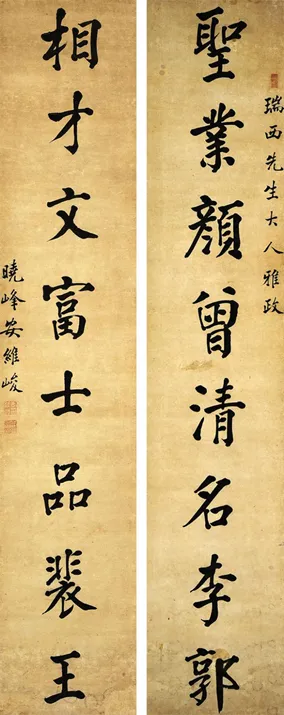 瑞西先生大人雅政
聖業顏曾清名李郭
相才文富士品裴王
曉峰安維峻